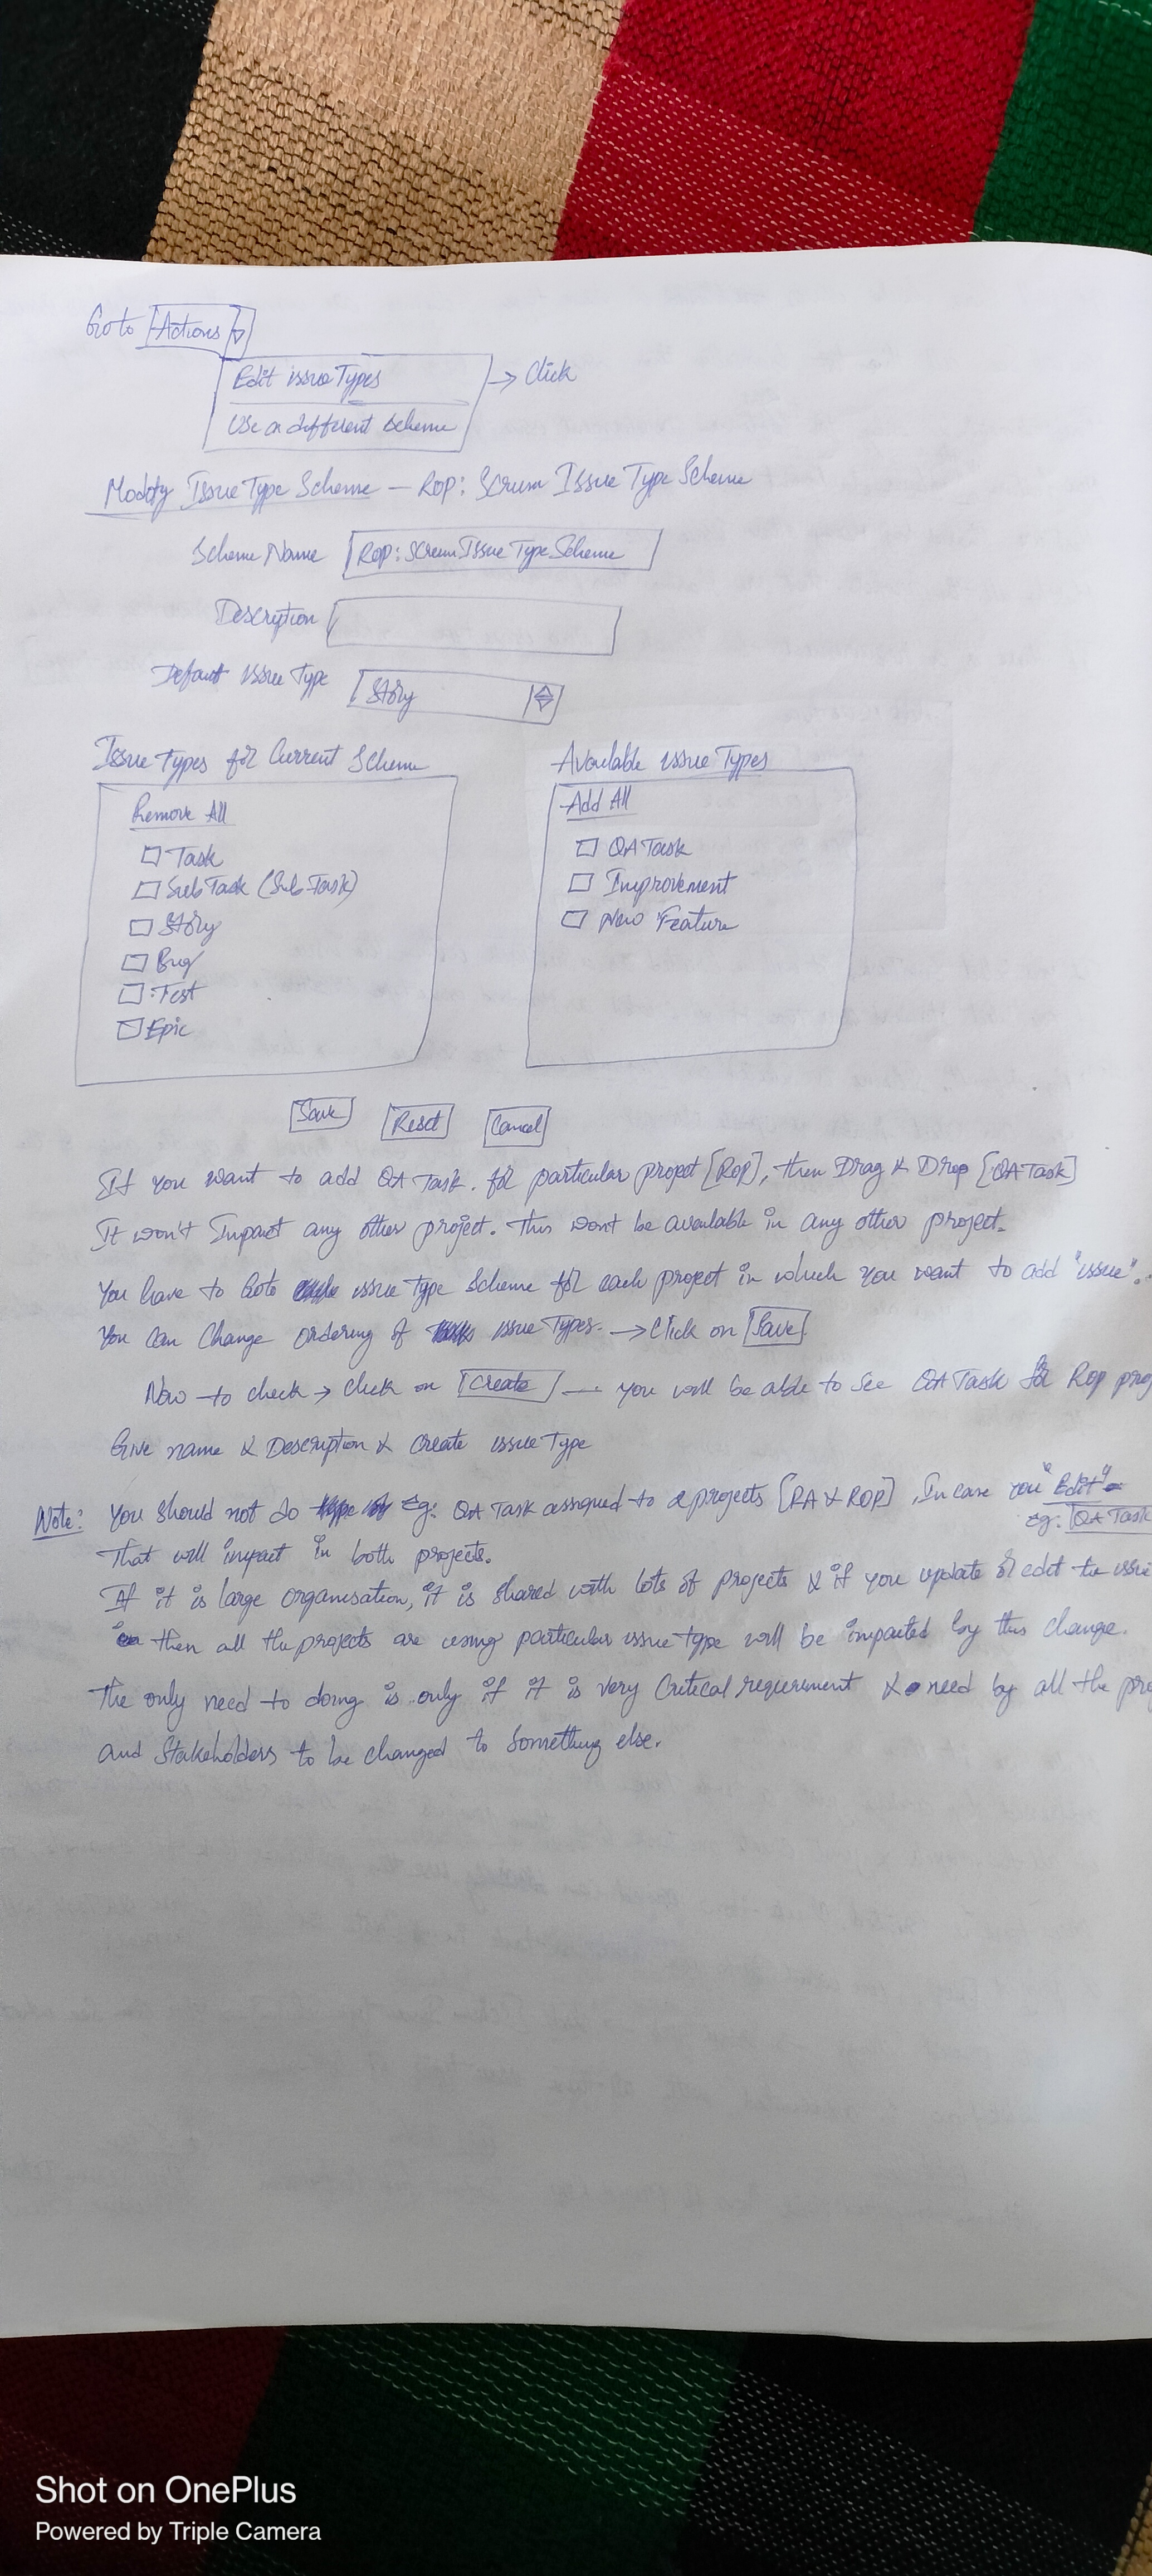 Go to Actions
Edit issue Types → Click
Use a different scheme
Modify Issue Type Scheme — ROP: Scrum Issue Type Scheme
Scheme Name ROP: Scrum Issue Type Scheme
Description
Default issue Type Story
Issue Types for Current Scheme
Remove All
Task
SubTask (Sub Task)
Story
Bug
Test
Epic
Available issue Types
Add All
QA Task
Improvement
New Feature
Save Reset Cancel
If you want to add QA Task. for particular project [ROP], then Drag & Drop [QA Task]
It won't Impact any other project. This won't be available in any other project.
You have to Goto issue type Scheme for each project in which you want to add "issue".
You can Change ordering of issue Types. → Click on Save
Now to check → Click on Create — you will be able to see QA Task for ROP
Give name & Description & Create issue Type
Note: You should not do Eg: QA Task assigned to 2 projects [RA & ROP], In case you "Edit"
eg: QA Task
That will impact in both projects.
If it is large organisation, it is shared with lots of projects & if you update or edit the
then all the projects are using particular issue type will be impacted by this change.
The only need to doing is only if it is very Critical requirement & need by all the
and Stakeholders to be changed to something else.
Shot on OnePlus
Powered by Triple Camera